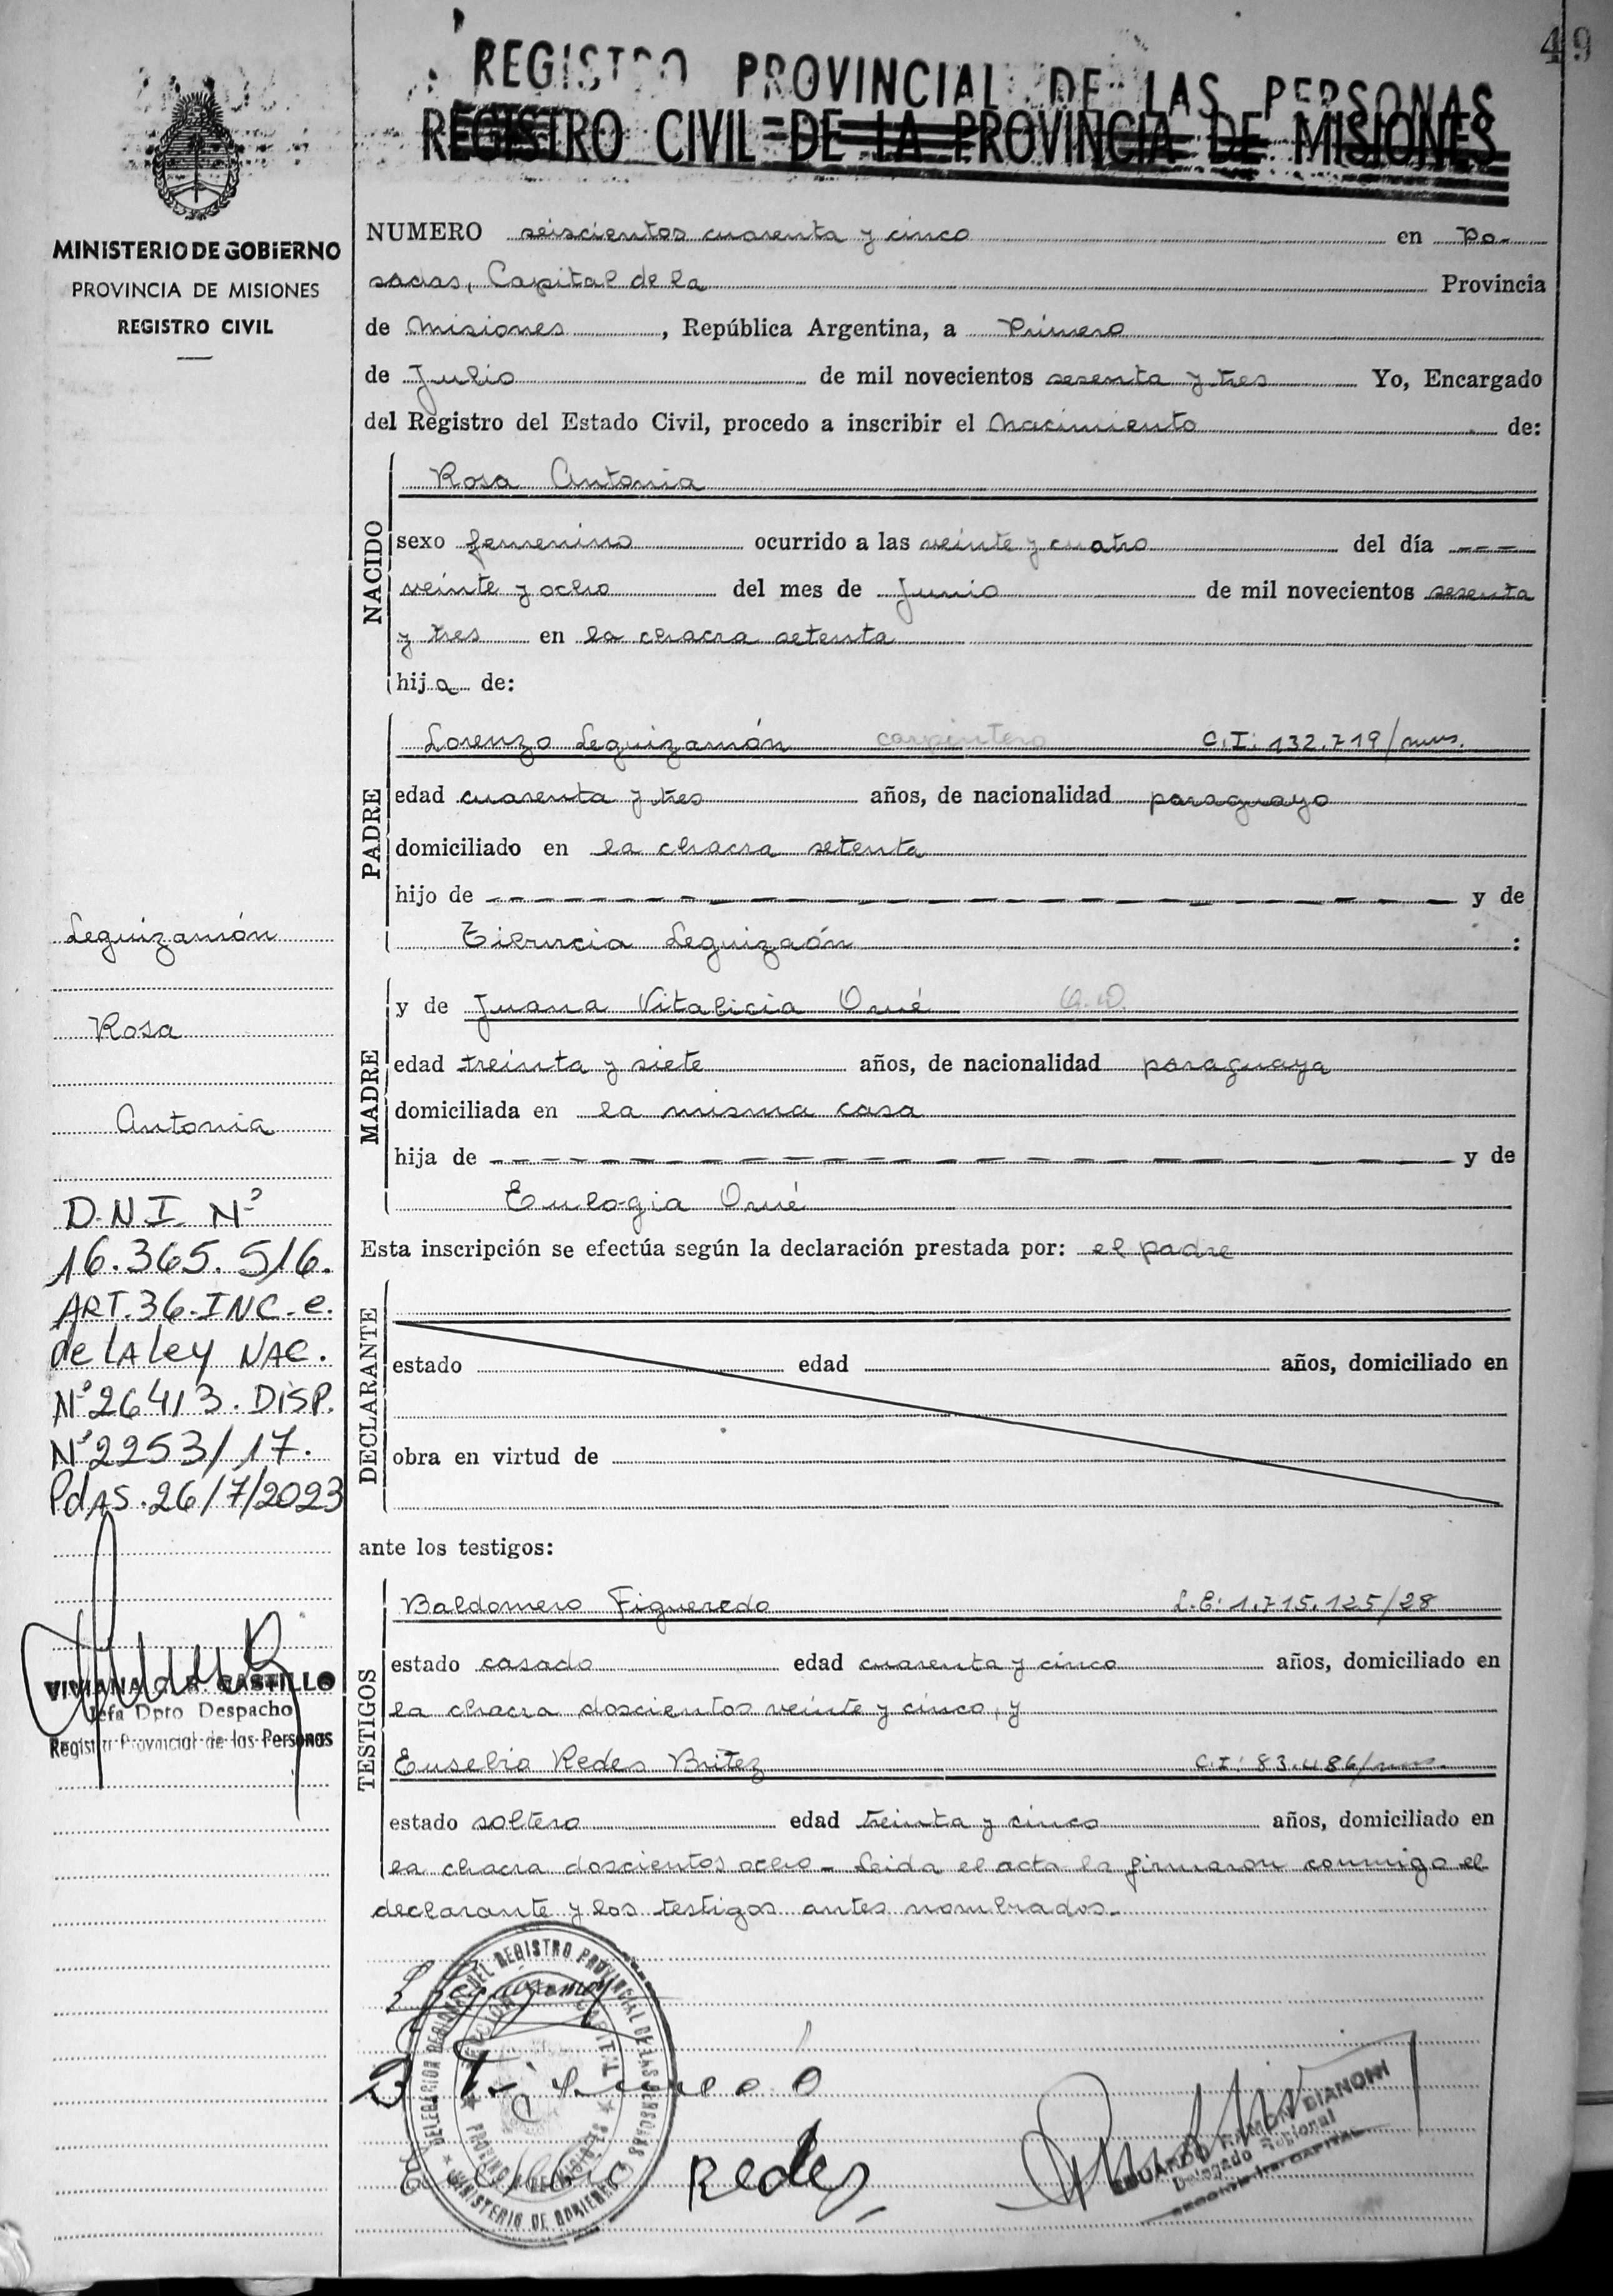 49
REGISTRO PROVINCIAL DE LAS PERSONAS
REGISTRO CIVIL DE LA PROVINCIA DE MISIONES
MINISTERIO DE GOBIERNO
PROVINCIA DE MISIONES
REGISTRO CIVIL
NUMERO seiscientos cuarenta y cinco en Po-
sadas, Capital de la Provincia
de Misiones, República Argentina, a Primero
de Julio de mil novecientos sesenta y tres Yo, Encargado
del Registro del Estado Civil, procedo a inscribir el Nacimiento de:
NACIDO
Rosa Antonia
sexo femenino ocurrido a las veinte y cuatro del día ---
veinte y ocho del mes de Junio de mil novecientos sesenta
y tres en la chacra setenta
hija de:
PADRE
Lorenzo Leguizamón carpintero C.I: 132.719/mns.
edad cuarenta y tres años, de nacionalidad paraguayo
domiciliado en la chacra setenta
hijo de y de
Leguizaón :
MADRE
y de Juana Vitalicia Oué Q.D.
edad treinta y siete años, de nacionalidad paraguaya
domiciliada en la misma casa
hija de y de
Eulogia Oué
Esta inscripción se efectúa según la declaración prestada por: el padre
DECLARANTE
estado edad años, domiciliado en
obra en virtud de
ante los testigos:
TESTIGOS
Baldomero Figueredo L.E: 1.715.125/28
estado casado edad cuarenta y cinco años, domiciliado en
la chacra doscientos veinte y cinco, y
Eusebio Redes Britez C.I: 83.486/
estado soltero edad treinta y cinco años, domiciliado en
la chacra doscientos ocho - Leida el acta la firmaron conmigo el
declarante y los testigos antes nombrados.-
Leguizamón
Rosa
Antonia
D.N.I. Nº
16.365.516.
ART.36-INC-e.
de LA LEY NAC.
Nº26413. DISP.
Nº2253/17.
PdAS.26/7/2023
VIVIANA C. R. CASTILLO
Jefa Dpto Despacho
Registro Provincial de las Personas
L Leguizamon
DELEGACION REGIONAL DEL REGISTRO PROVINCIAL DE LAS PERSONAS
MINISTERIO DE GOBIERNO
PROVINCIA DE MISIONES
Redes
EDUARDO RAMON BIANCHI
Delegado Regional
CAPITAL